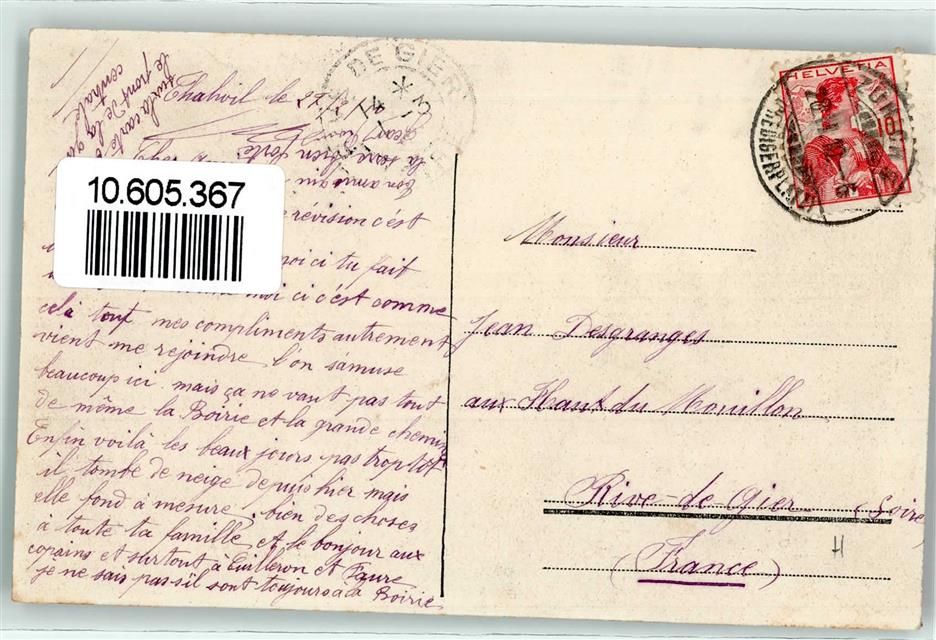 sur la carte
le pont de la
centrale
Thalwil le 27
DE GIER
la serre bien forte
ton ami
10.605.367
révision c'est
moi ci tu fait
moi ci c'est comme
celà tout mes compliments autrement
vient me rejoindre l'on s'amuse
beaucoup ici mais ça ne vaut pas tout
de même la Boirie et la grande chemin
Enfin voilà les beaux jours pas trop tôt
il tombe de neige depuis hier mais
elle fond à mesure, bien des choses
à toute ta famille et le bonjour aux
copains et surtout à Cuilleron et Faure
je ne sais pas s'il sont toujours a la Boirie
HELVETIA
10
Monsieur
Jean Desgranges
aux Haut du Mouillon
Rive-de-Gier (Loire
(France)
H